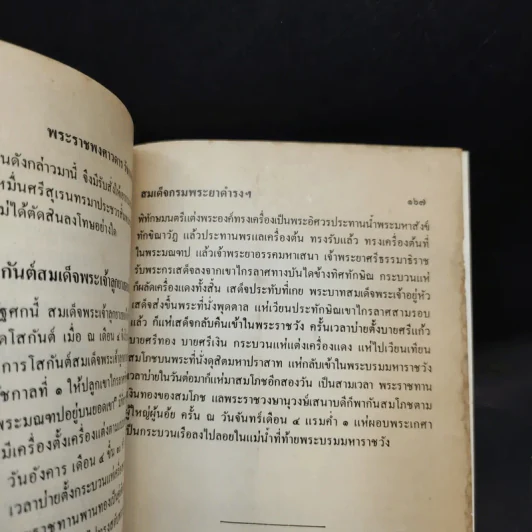 พระราชพงศาวดาร
นดังกล่าวมานี้ จึงมีรับสั่งให้
หมื่นศรีสุเรนทรมาประหาร
ม่ได้ตัดสินลงโทษอย่างใด
กันต์สมเด็จพระเจ้าลูก
ฐศกนี้ สมเด็จพระเจ้าลูก
ดโสกันต์ เมื่อ ณ เดือน
การโสกันต์สมเด็จพระเจ้า
ชกาลที่ ๑ ให้ปลูกเขาไกร
พระมณฑปอยู่บนยอดเขา
มีเครื่องตั้งเครื่องแต่ง
วันอังคาร เดือน ๔ ขึ้น
เวลาบ่ายตั้งกระบวนแห่
ราชทานพานทอง
สมเด็จกรมพระยาดำรงฯ ๑๖๗
พิทักษมนตรีแต่งพระองค์ทรงเครื่องเป็นพระอิศวรประทานน้ำพระมหาสังข์
ทักขิณาวัฏ แล้วประทานพรแลเครื่องต้น ทรงรับแล้ว ทรงเครื่องต้นที่
ในพระมณฑป แล้วเจ้าพระยาอรรคมหาเสนา เจ้าพระยาศรีธรรมาธิราช
รับพระกรเสด็จลงจากเขาไกรลาศทางบันไดข้างทิศทักษิณ กระบวนแห่
ก็ผลัดเครื่องแดงทั้งสิ้น เสด็จประทับที่เกย พระบาทสมเด็จพระเจ้าอยู่หัว
เสด็จส่งขึ้นพระที่นั่งพุดตาล แห่เวียนประทักษิณเขาไกรลาศสามรอบ
แล้ว ก็แห่เสด็จกลับคืนเข้าในพระราชวัง ครั้นเวลาบ่ายตั้งบายศรีแก้ว
บายศรีทอง บายศรีเงิน กระบวนแห่แต่งเครื่องแดง แห่ไปเวียนเทียน
สมโภชบนพระที่นั่งดุสิตมหาปราสาท แห่กลับเข้าในพระบรมมหาราชวัง
เวลาบ่ายในวันต่อมาก็แห่มาสมโภชอีกสองวัน เป็นสามเวลา พระราชทาน
เงินทองของสมโภช แลพระราชวงษานุวงษ์เสนาบดีก็พากันสมโภชตาม
ผู้ใหญ่ผู้น้อย ครั้น ณ วันจันทร์เดือน ๔ แรมค่ำ ๑ แห่ผอบพระเกศา
เป็นกระบวนเรือลงไปลอยในแม่น้ำที่ท้ายพระบรมมหาราชวัง